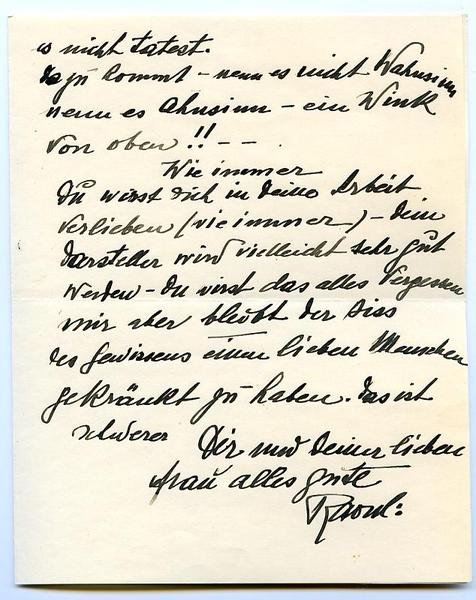 es nicht tatest.
Dazu kommt – nenn es nicht Wahnsinn
nenn es Ahnsinn – ein Wink
von oben!! – – .
Wie immer
Du wirst Dich in deine Arbeit
verlieben (wie immer) – Dein
Darsteller wird vielleicht sehr gut
werden – Du wirst das alles vergessen
mir aber bleibt der Biss
des Gewissens einen lieben Menschen
gekränkt zu haben. Das ist
schwerer
Dir und Deiner lieben
Frau alles gute
Raoul: